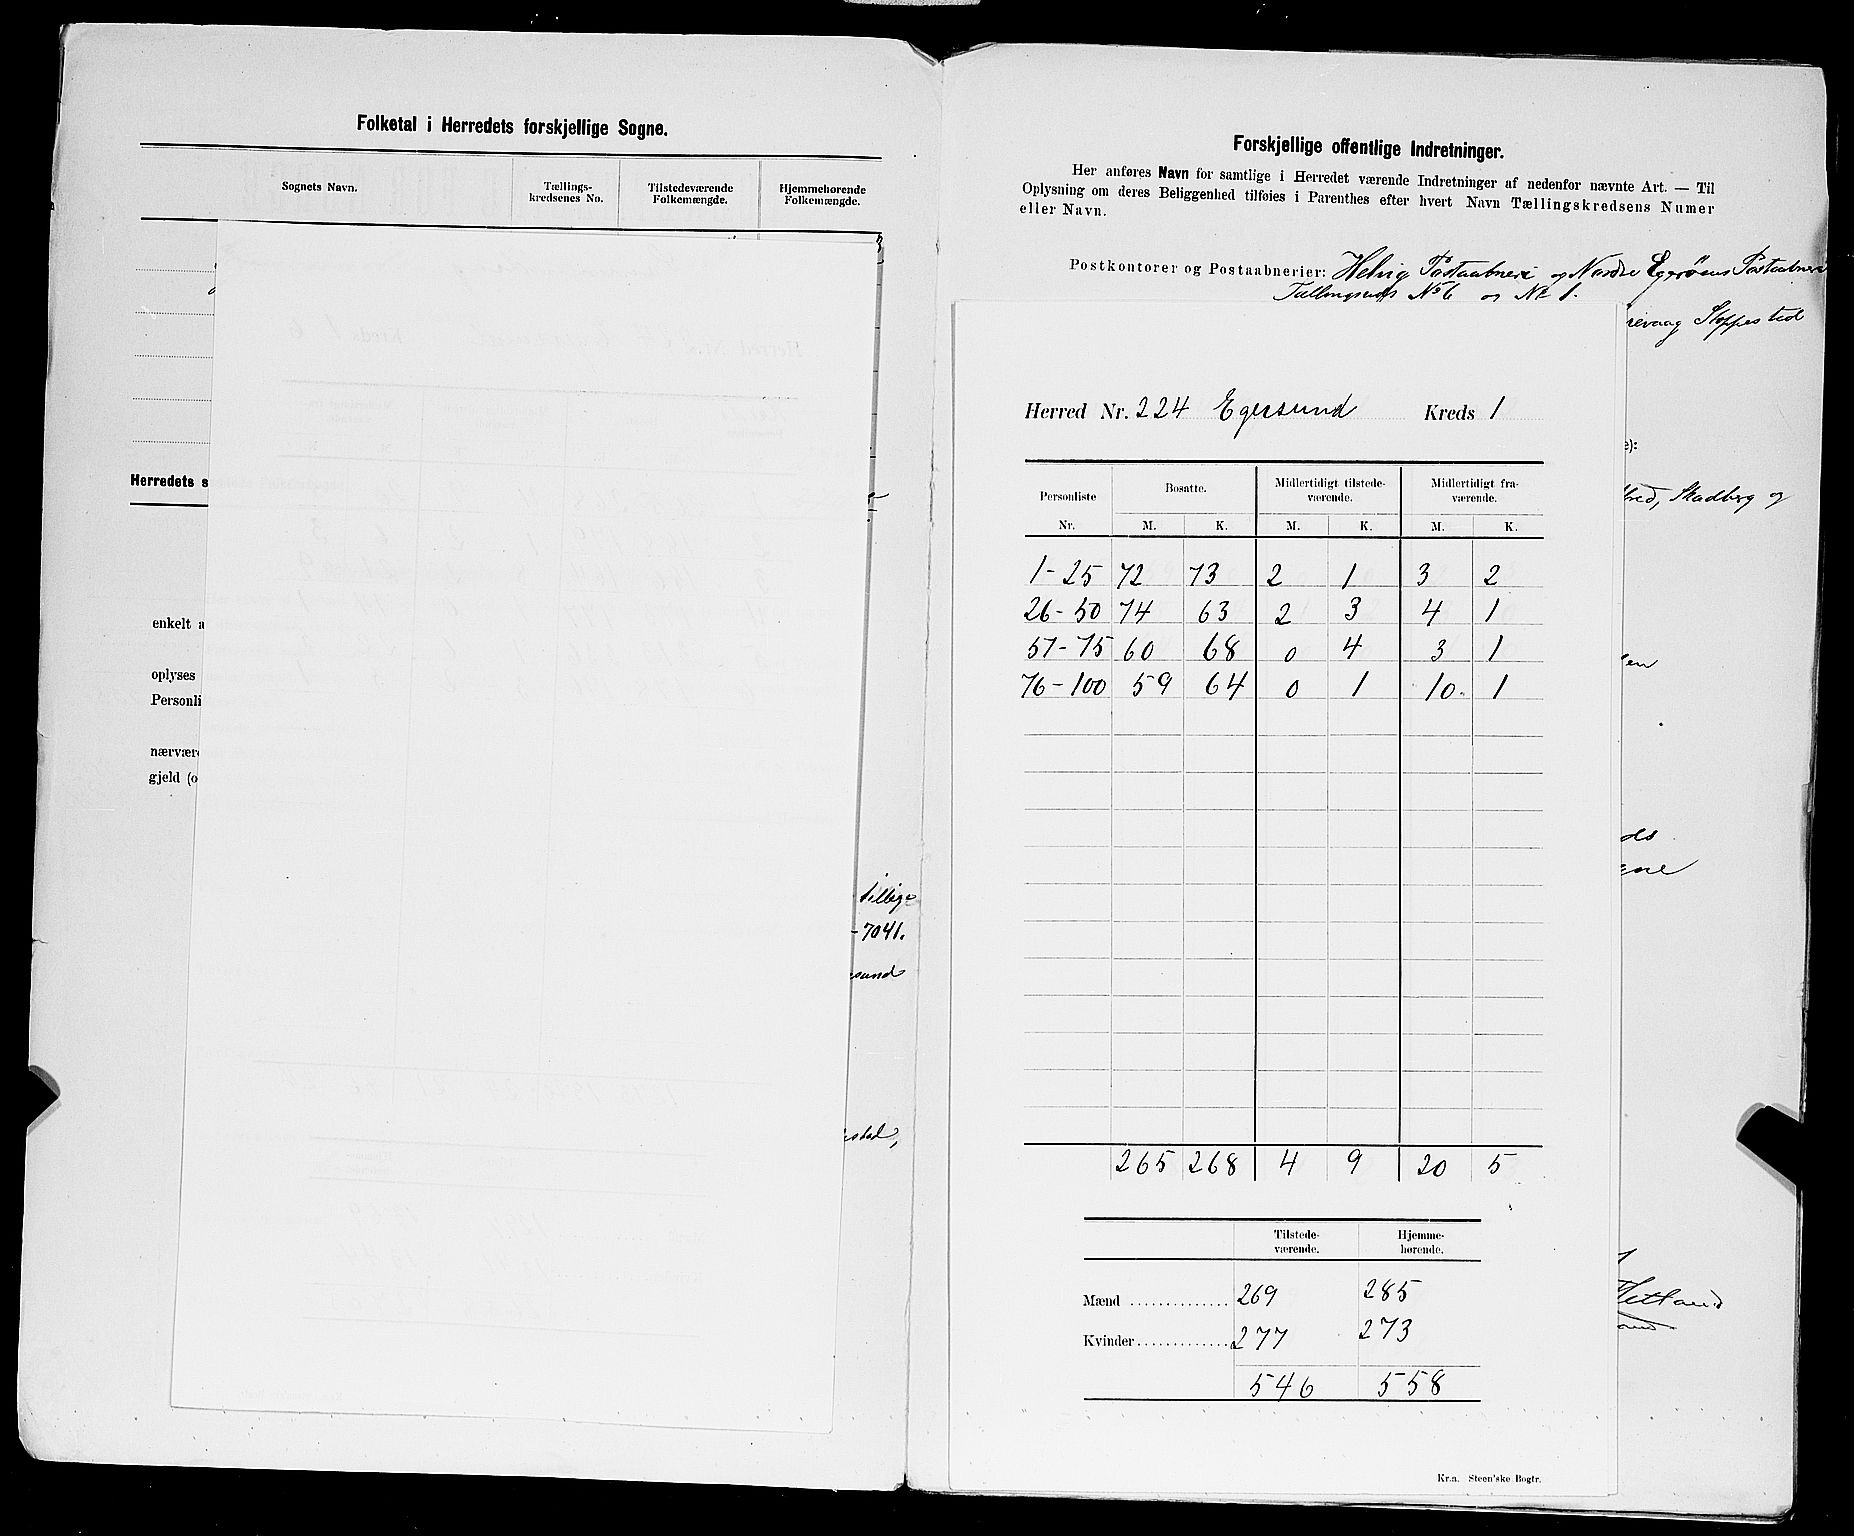 Folketal i Herredets forskjellige Sogne.
Sognets Navn.
Tællings-
kredsenes No.
Tilstedeværende
Folkemængde.
Hjemmehørende
Folkemængde.
Herredets s
enkelt a
oplyses
Personli
nærvære
gjeld (o
tillige
-7041.
sund
stad,
Forskjellige offentlige Indretninger.
Her anføres Navn for samtlige i Herredet værende Indretninger af nedenfor nævnte Art. — Til
Oplysning om deres Beliggenhed tilføies i Parenthes efter hvert Navn Tællingskredsens Numer
eller Navn.
Postkontorer og Postaabnerier: Helvig Postaabneri og Nordre Egerøens Postaabneri
No 6 og No 1.
revaag Stoppested
e):
fred, Skadberg og
en
ds
gne
Hetland
Herred Nr. 224 Egersund Kreds 1
Personliste
Nr.
Bosatte.
Midlertidigt tilstede-
værende.
Midlertidigt fra-
værende.
M. K. M. K. M. K.
1-25 72 73 2 1 3 2
26-50 74 63 2 3 4 1
51-75 60 68 0 4 3 1
76-100 59 64 0 1 10 1
265 268 4 9 20 5
Tilstede-
værende.
Hjemme-
hørende.
Mænd .............. 269 285
Kvinder ............. 277 273
546 558
Kr.a. Steen'ske Bogtr.